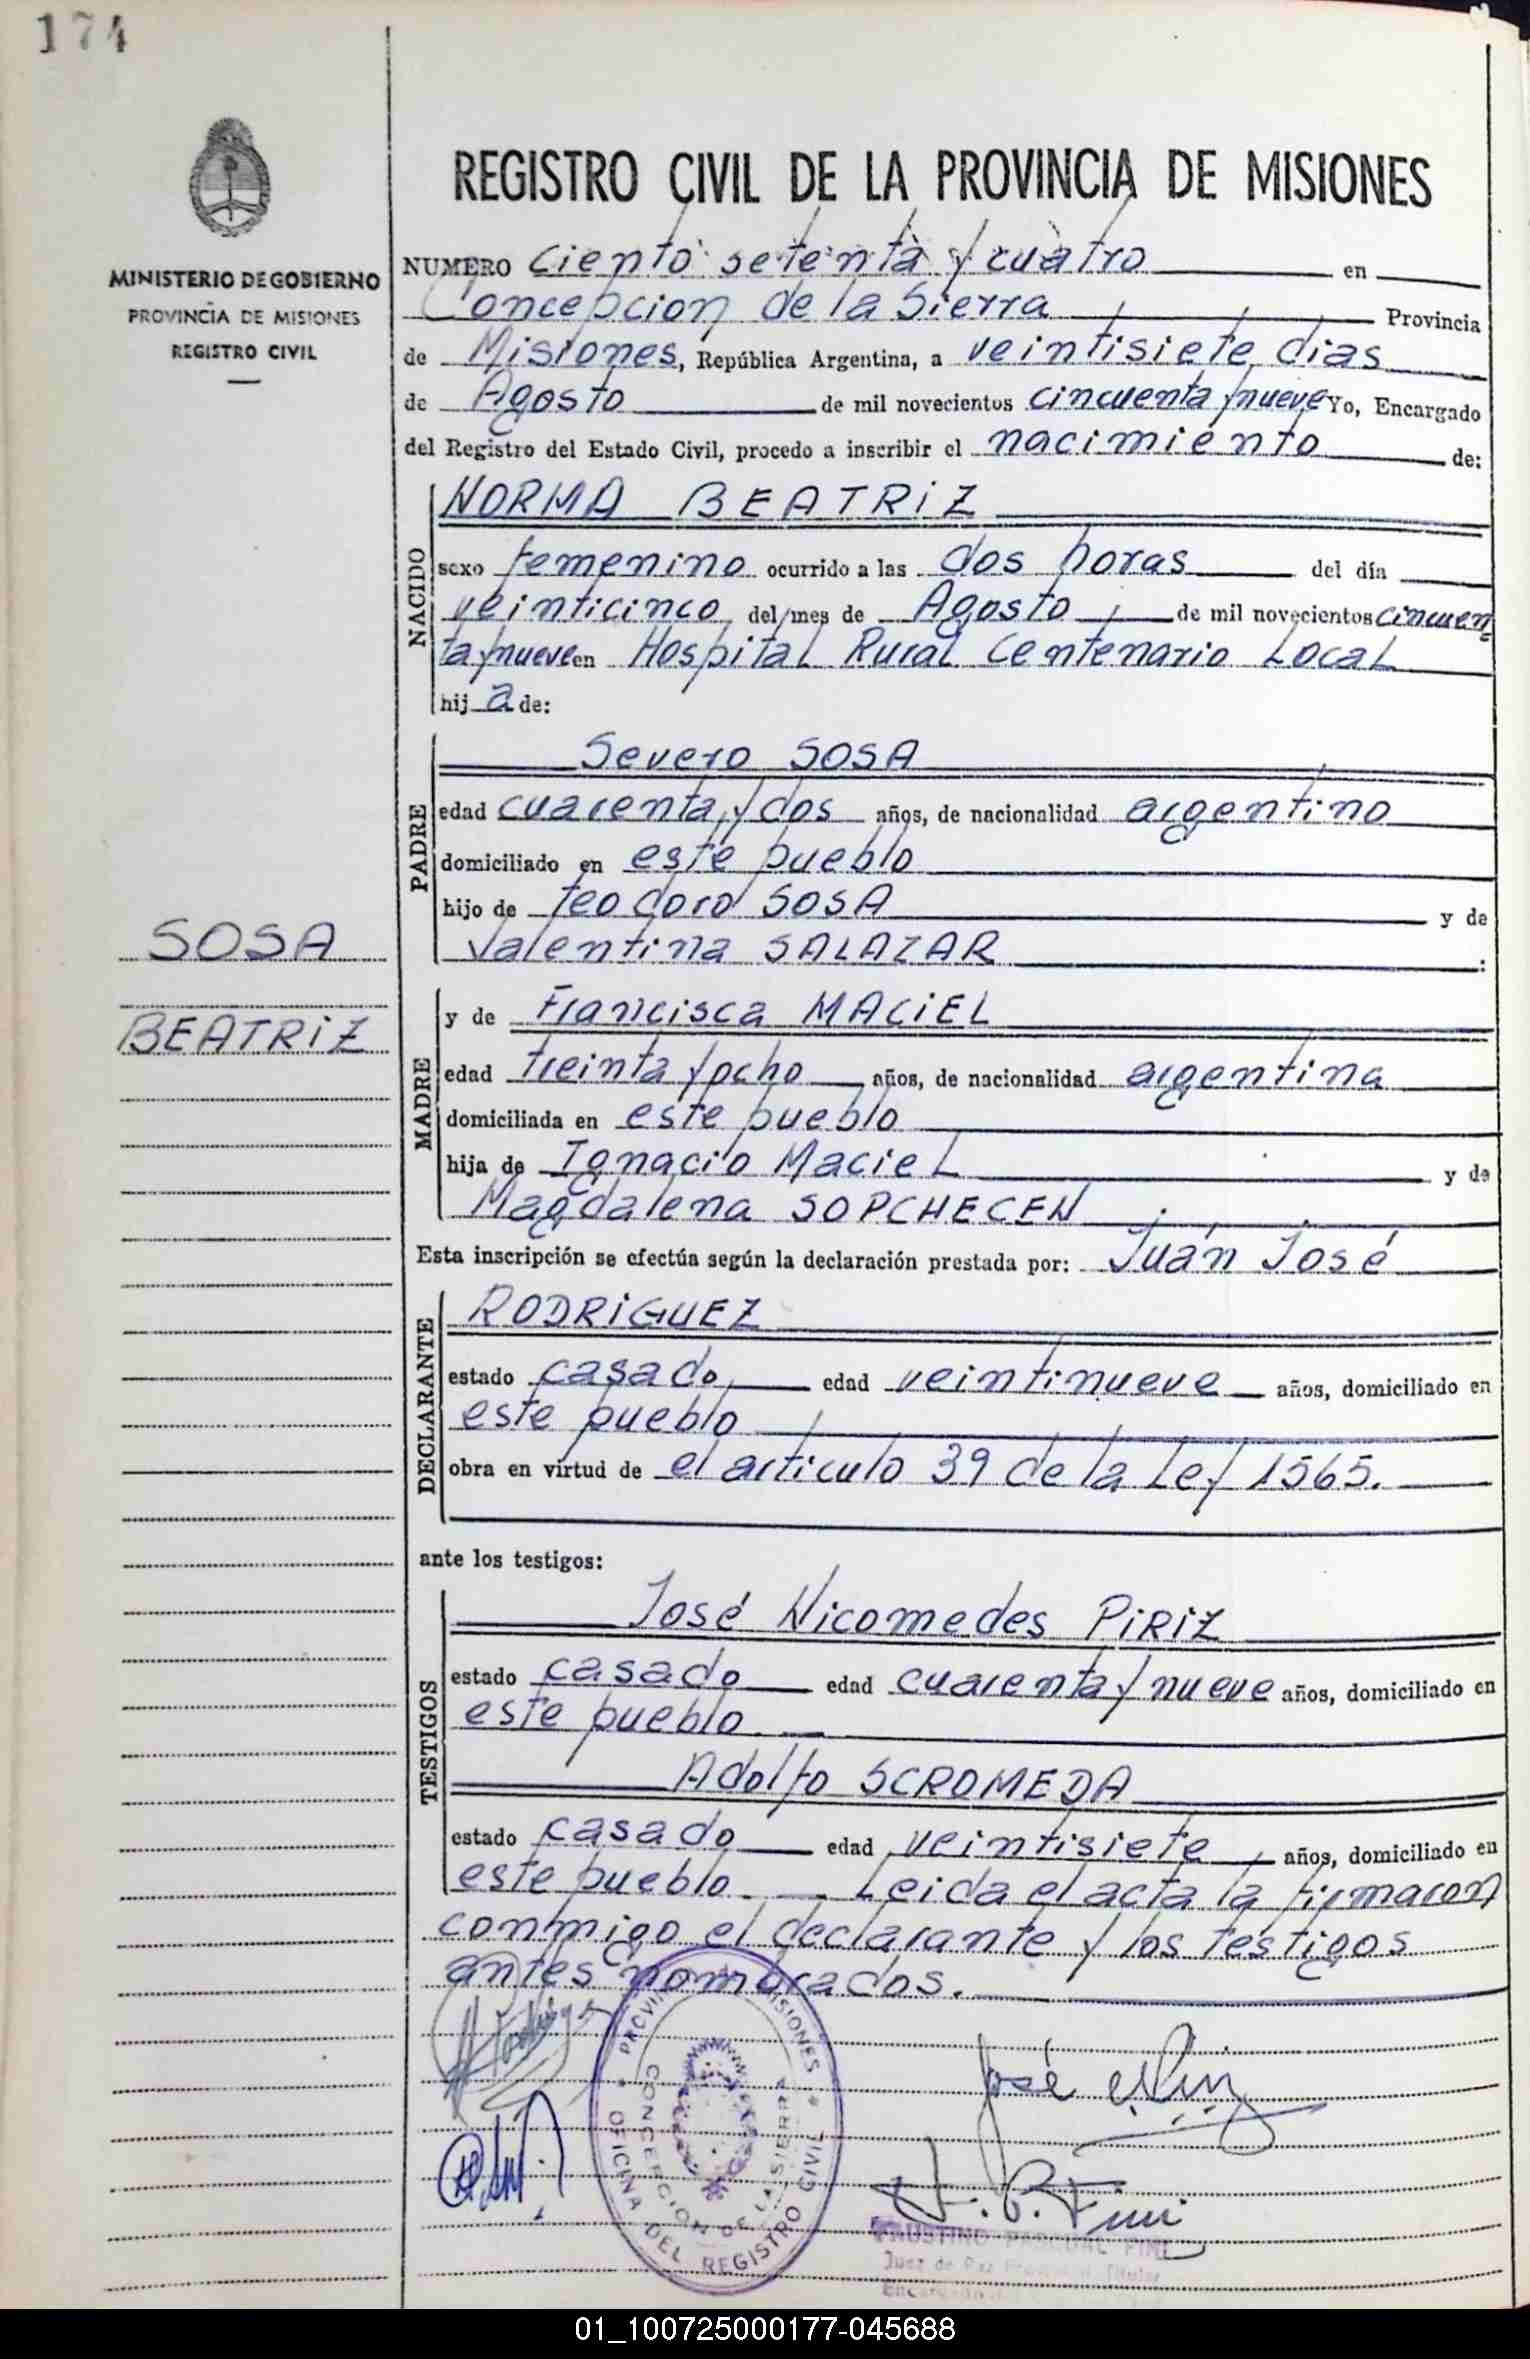 174
MINISTERIO DE GOBIERNO
PROVINCIA DE MISIONES
REGISTRO CIVIL
SOSA
BEATRIZ
REGISTRO CIVIL DE LA PROVINCIA DE MISIONES
NUMERO Ciento setenta y cuatro en
Concepcion de la Sierra Provincia
de Misiones, República Argentina, a veintisiete dias
de Agosto de mil novecientos cincuenta y nueve Yo, Encargado
del Registro del Estado Civil, procedo a inscribir el nacimiento de:
NACIDO
NORMA BEATRIZ
sexo femenino ocurrido a las dos horas del día
veinticinco del mes de Agosto de mil novecientos cincuen
ta y nueve en Hospital Rural Centenario Local
hij a de:
PADRE
Severo SOSA
edad cuarenta y dos años, de nacionalidad argentino
domiciliado en este pueblo
hijo de Teodoro SOSA y de
Valentina SALAZAR :
MADRE
y de Francisca MACIEL
edad treinta y ocho años, de nacionalidad argentina
domiciliada en este pueblo
hija de Ignacio Maciel y de
Magdalena SOPCHECEN
Esta inscripción se efectúa según la declaración prestada por: Juán José
DECLARANTE
RODRIGUEZ
estado casado edad veintinueve años, domiciliado en
este pueblo
obra en virtud de el articulo 39 de la Ley 1565.
ante los testigos:
TESTIGOS
José Nicomedes PIRIZ
estado casado edad cuarenta y nueve años, domiciliado en
este pueblo
Adolfo SCROMEDA
estado casado edad veintisiete años, domiciliado en
este pueblo. Leida el acta la firmaron
conmigo el declarante y los testigos
antes nombrados.
PROVINCIA DE MISIONES
OFICINA DEL REGISTRO CIVIL
CONSCEPCION DE LA SIERRA
José N. Piriz
F. P. Fini
FAUSTINO PASCUAL FINI
Juez de Paz Titular
Encargado
01_100725000177-045688